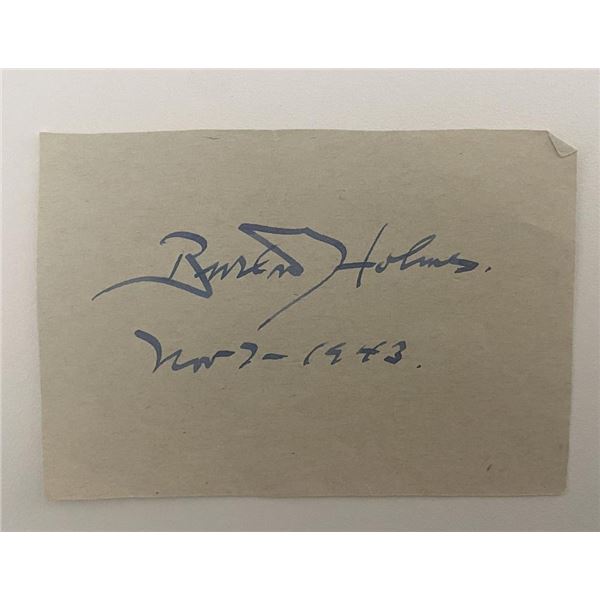 Burton Holmes.
Nov 7-1943.